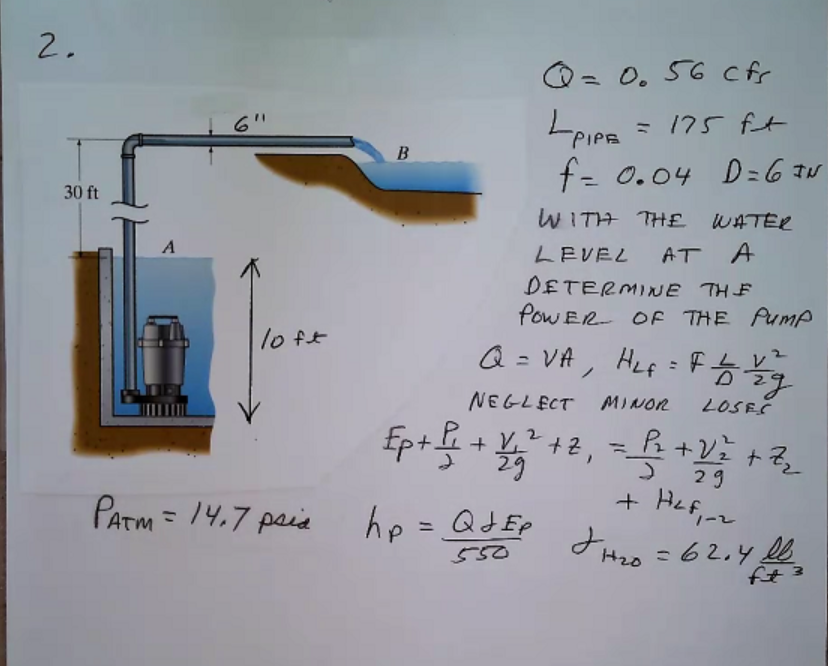 2.
6"
B
30 ft
A
10 ft
Q = 0.56 cfs
L PIPE = 175 ft
f = 0.04 D=6 IN
WITH THE WATER
LEVEL AT A
DETERMINE THE
POWER OF THE PUMP
Q = VA, HLf = F L/D V²/2g
NEGLECT MINOR LOSES
Ep + P₁/γ + V₁²/2g + Z₁ = P₂/γ + V₂²/2g + Z₂
+ HLf₁₋₂
PATM = 14.7 psia
hp = QγEp/550
γ H₂O = 62.4 lb/ft³